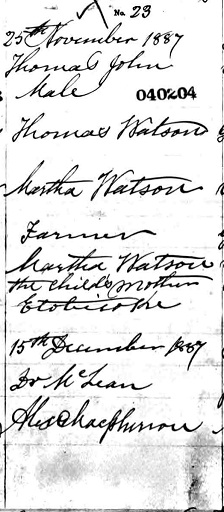 No. 23
25th November 1887
Thomas John
Male
040204
Thomas Watson
Martha Watson
Farmer
Martha Watson
the child's mother
Etobicoke
15th December 1887
Dr McLean
Alex Macpherson